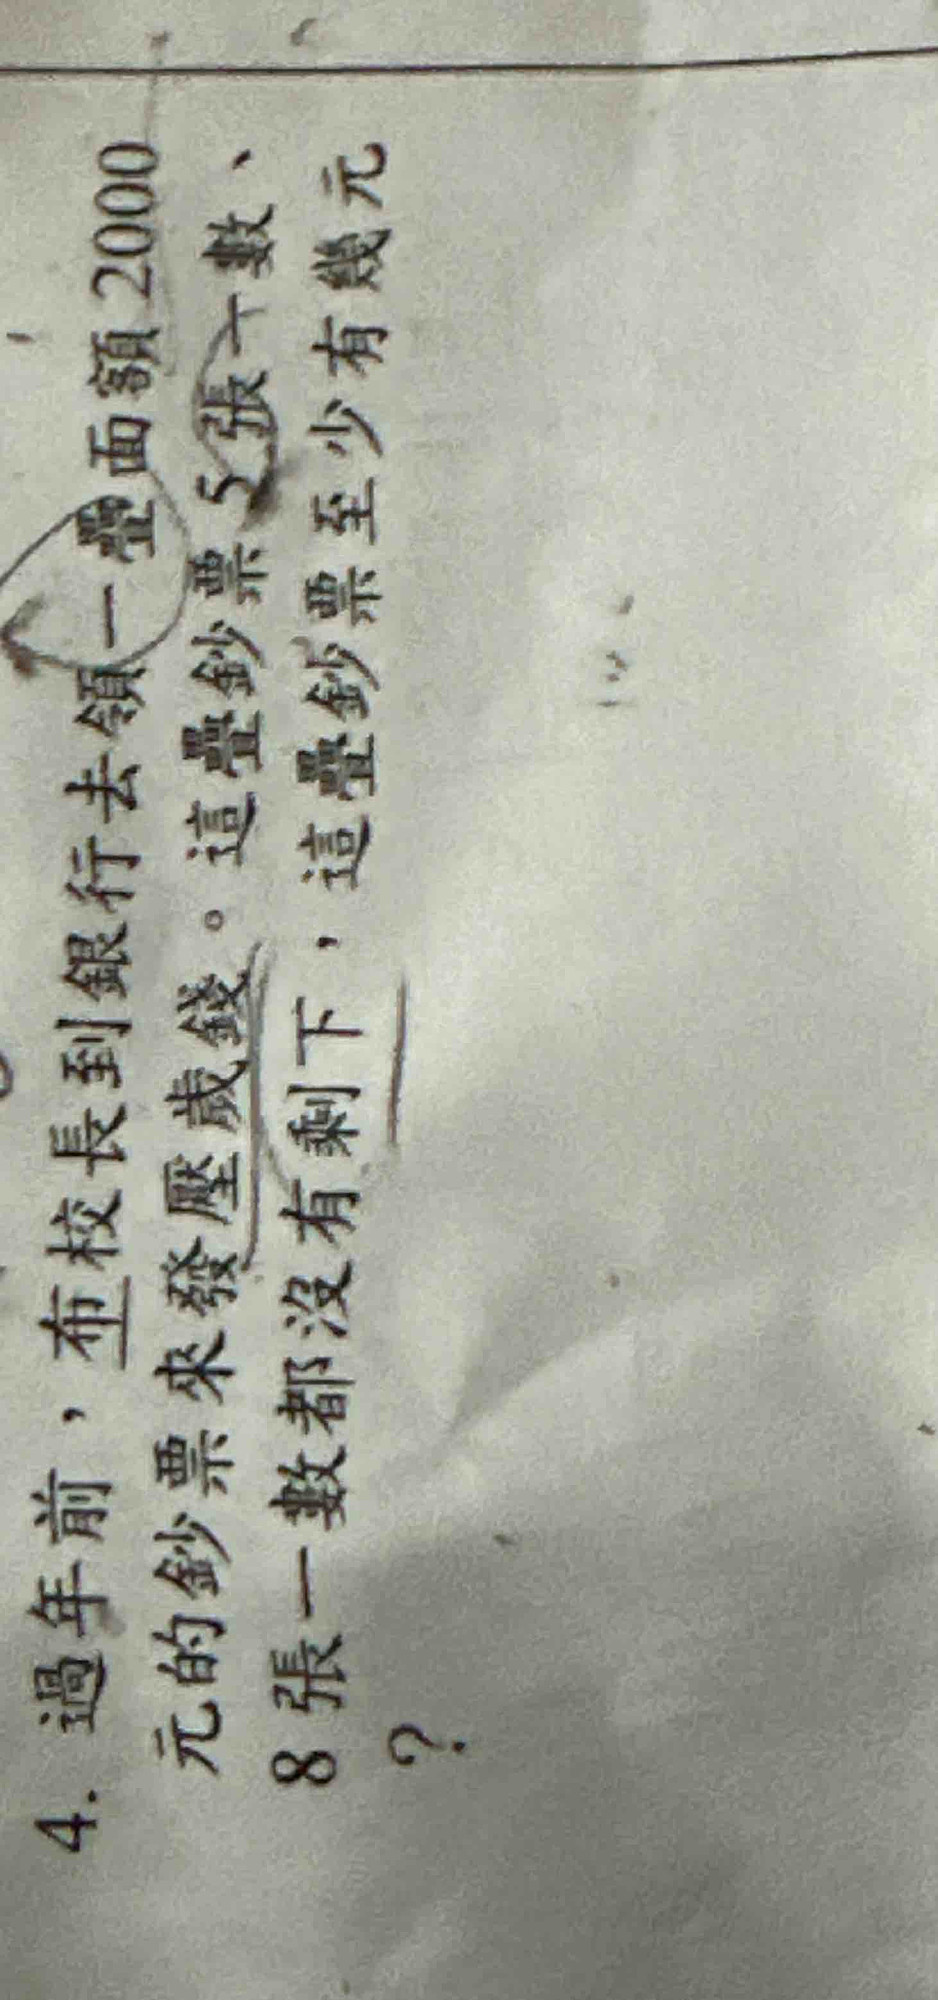 4. 過年前，布校長到銀行去領一疊面額2000
元的鈔票來發壓歲錢。這疊鈔票5張一數、
8張一數都沒有剩下，這疊鈔票至少有幾元
？